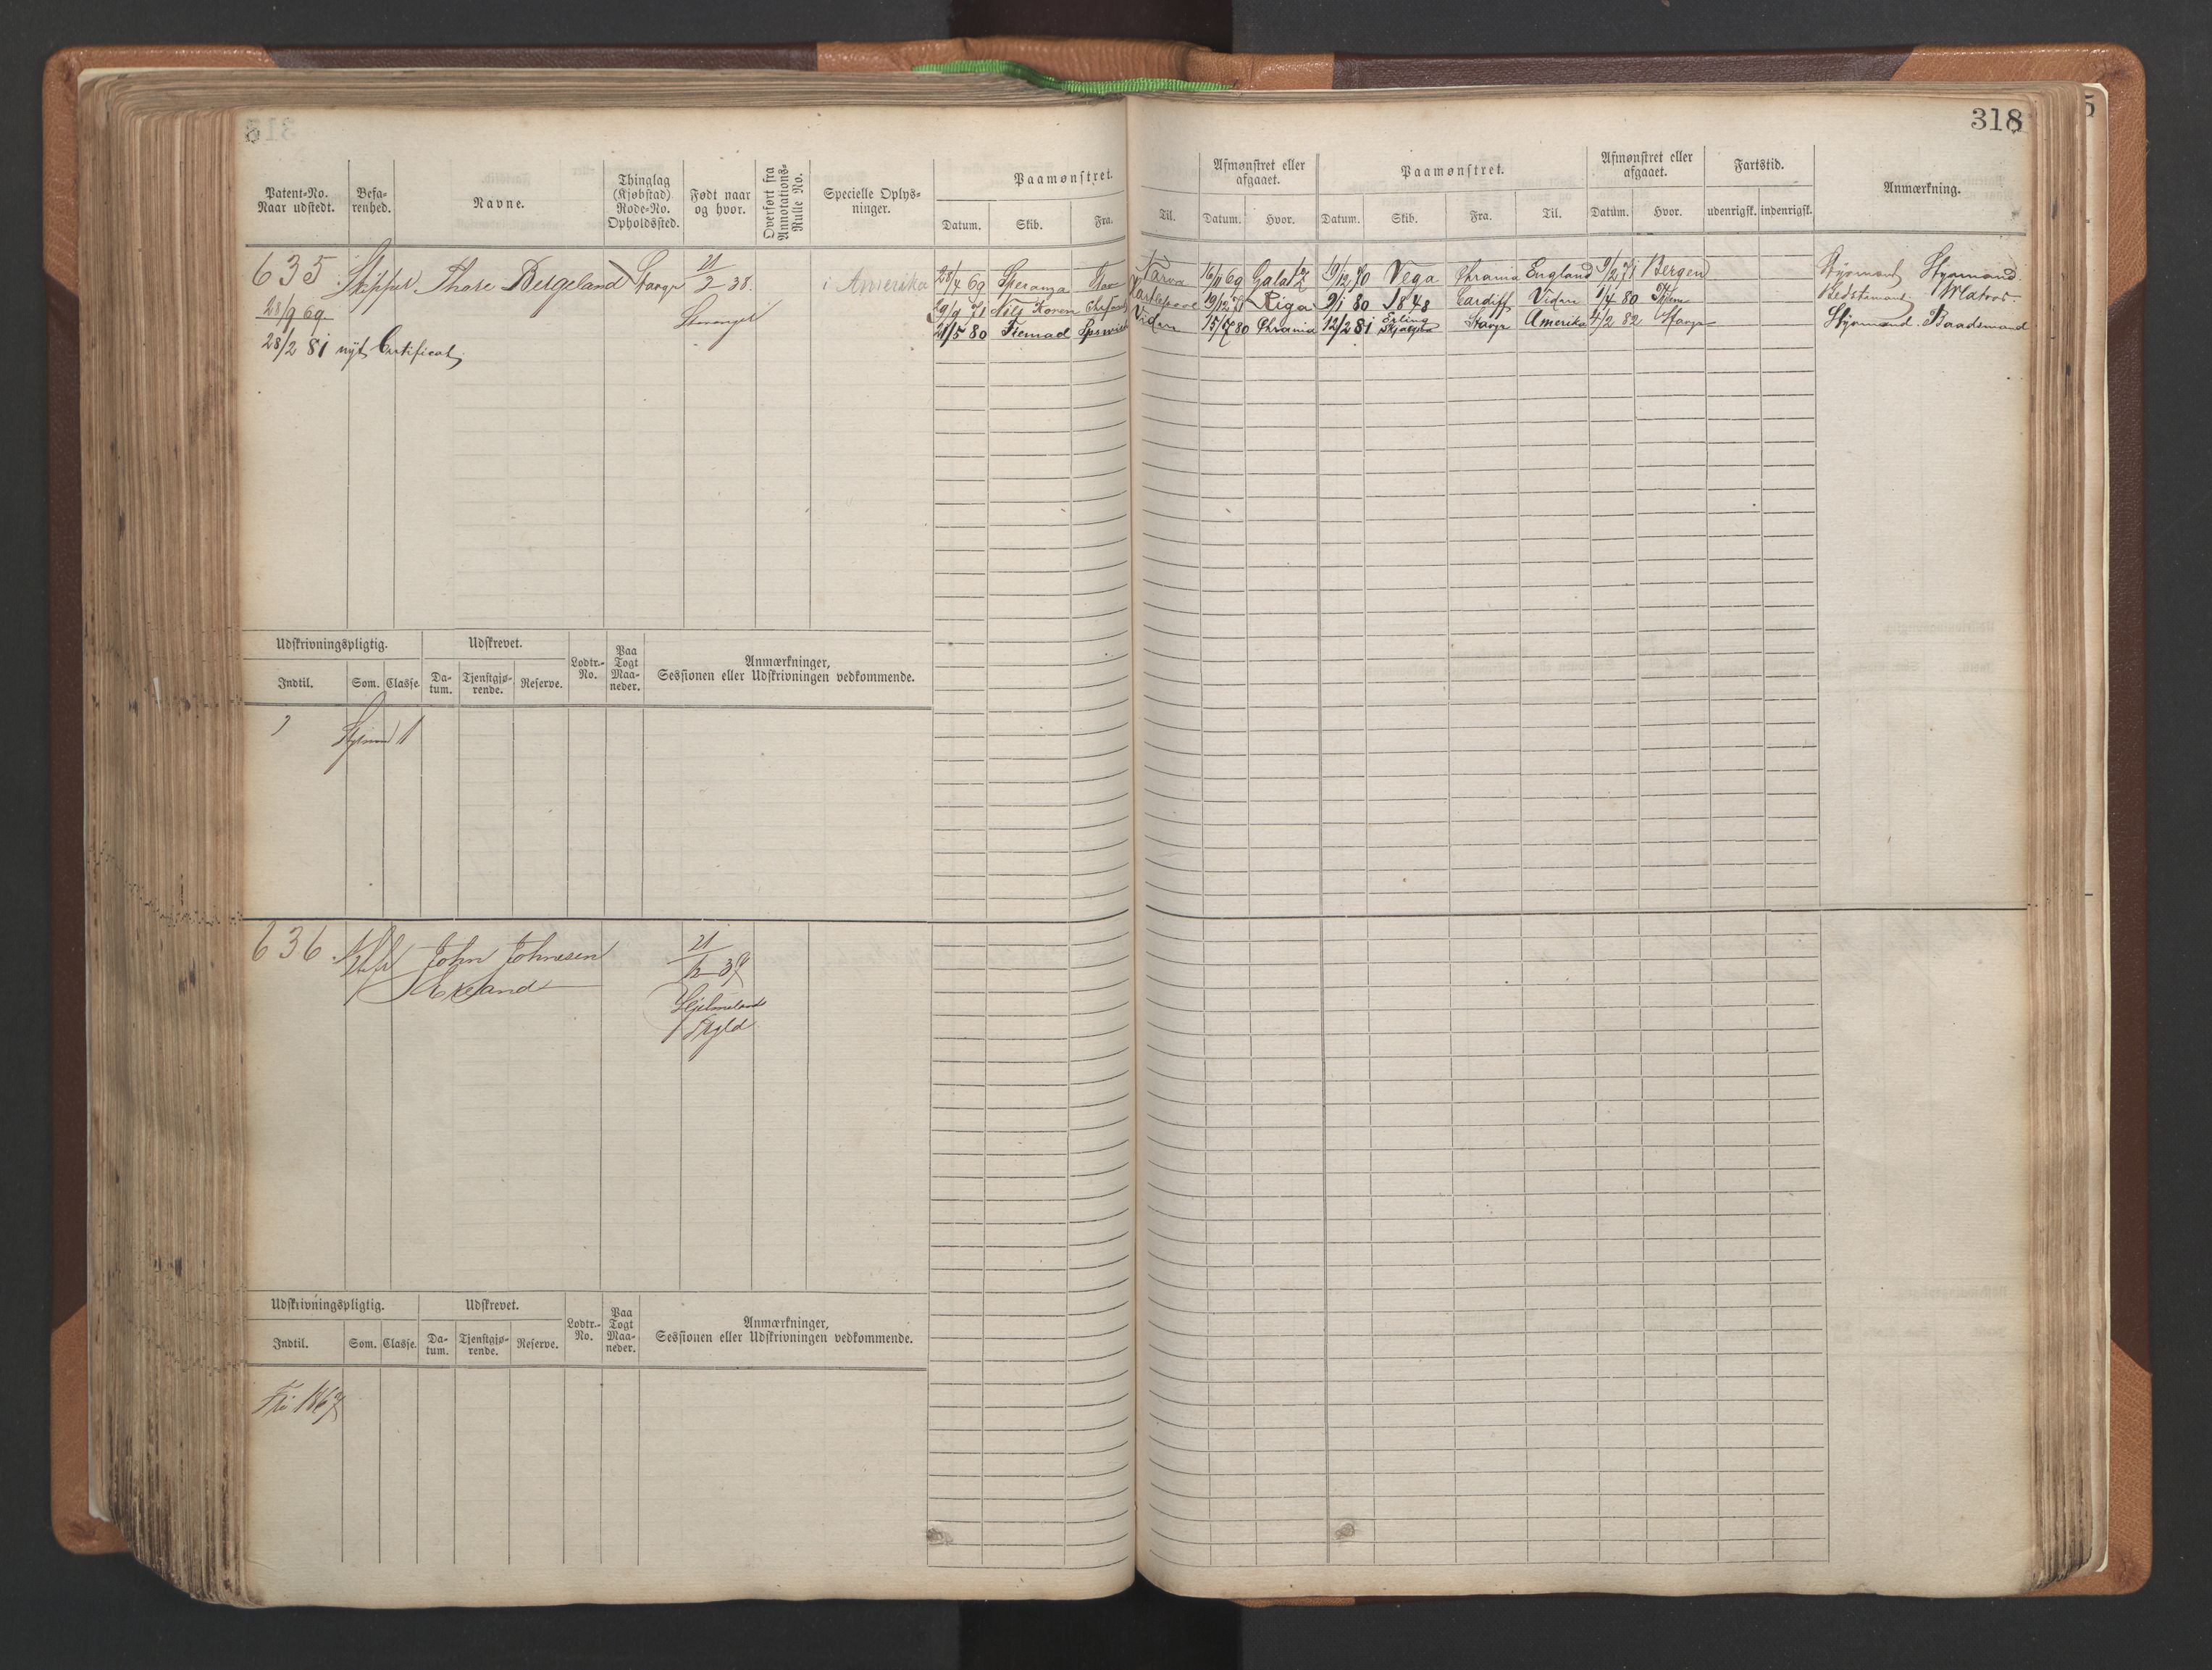 318
Patent-No. Naar udstedt.
Befa-renhed.
Navne.
Thinglag (Kjøbstad) Rode-No. Opholdssted.
Født naar og hvor.
Overført fra Annotations-Rulle No.
Specielle Oplys-ninger.
Paamønstret.
Datum. Skib. Fra. Til.
Afmønstret eller afgaaet.
Datum. Hvor.
Paamønstret.
Datum. Skib. Fra. Til.
Afmønstret eller afgaaet.
Datum. Hvor.
Fartstid.
udenrigsk. indenrigsk.
Anmærkning.
635 Skipper Thore Bergeland Stavgr 21/2 38. i Amerika
Stavanger
28/9 69
28/2 81 nyt Certificat
28/4 69 Speranza Narva 16/11 69 Galatz 19/12 70 Vega Chrania England 9/2 71 Bergen Styrmand Styrmand.
29/9 71 Nils Koren Hartlepool 19/12 71 Riga 9/1 80 1848 Cardiff Viden 1/4 80 Bedstemand. Matros
21/5 80 Ipswich Viden 15/7 80 Chrania 12/2 81 Erling Skjalgsøn Stavgr Amerika 4/2 82 Stavgr Styrmand. Baadsmand
Udskrivningspligtig. Udskrevet. Lodtr.-No. Paa Togt Maa-neder. Anmærkninger, Sessionen eller Udskrivningen vedkommende.
Indtil. Som. Classe. Da-tum. Tjenstgjø-rende. Reserve.
Styrmd 1
636 John Johnesen 21/12 39
Ekeland
Hjelmeland
Skgld
Udskrivningspligtig. Udskrevet. Lodtr.-No. Paa Togt Maa-neder. Anmærkninger, Sessionen eller Udskrivningen vedkommende.
Indtil. Som. Classe. Da-tum. Tjenstgjø-rende. Reserve.
Fri 1867